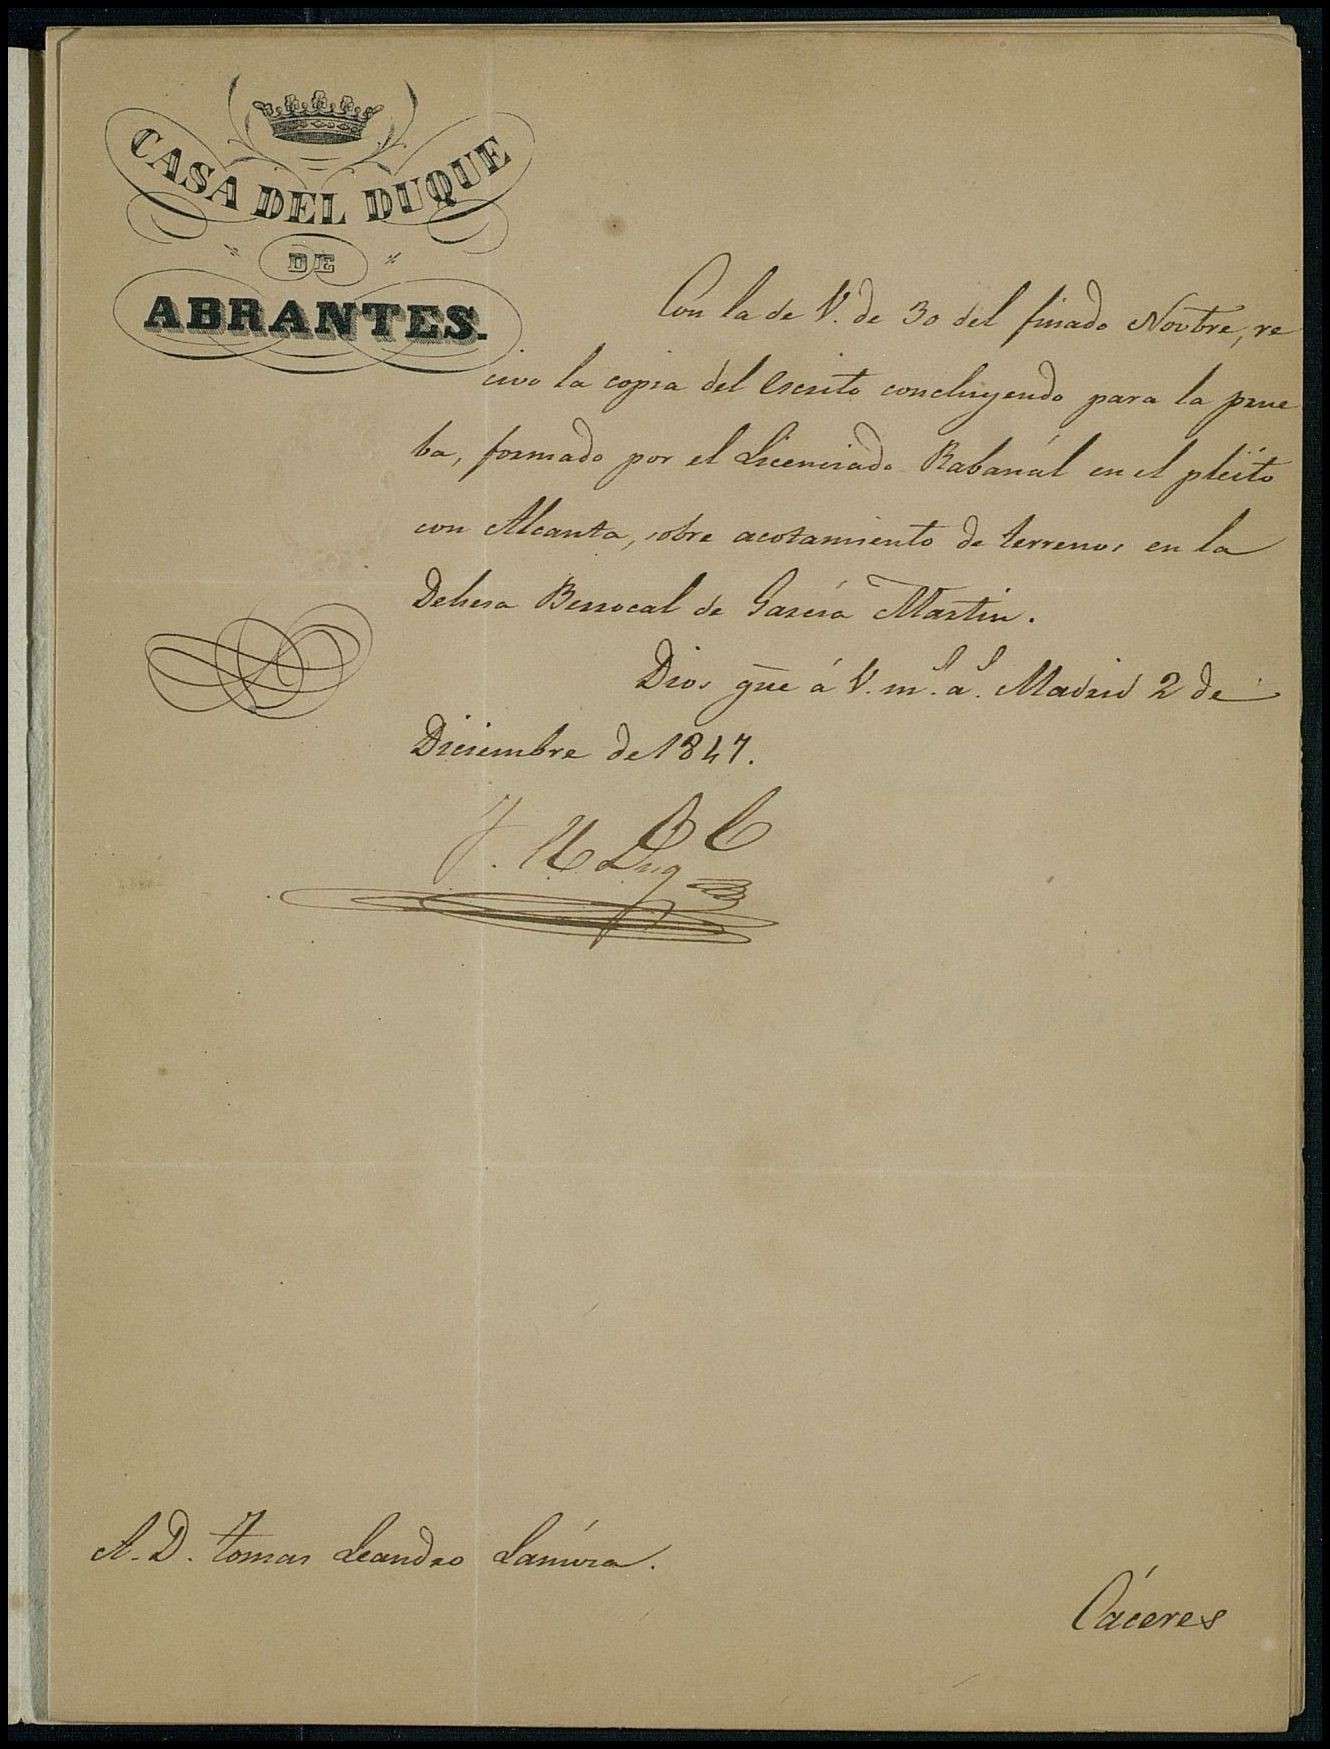 CASA DEL DUQUE
DE
ABRANTES.
Con la de V. de 30 del finado Novbre, re
civo la copia del escrito concluyendo para la prue
ba, formado por el Licenciado Rabanál en el pleito
con Alcanta, sobre acotamiento de terrenos en la
Dehesa Berrocal de García Martin.
Dios gue á V. m.s a.s Madrid 2 de
Diciembre de 1847.
A. D. Tomas Leandro
Cáceres